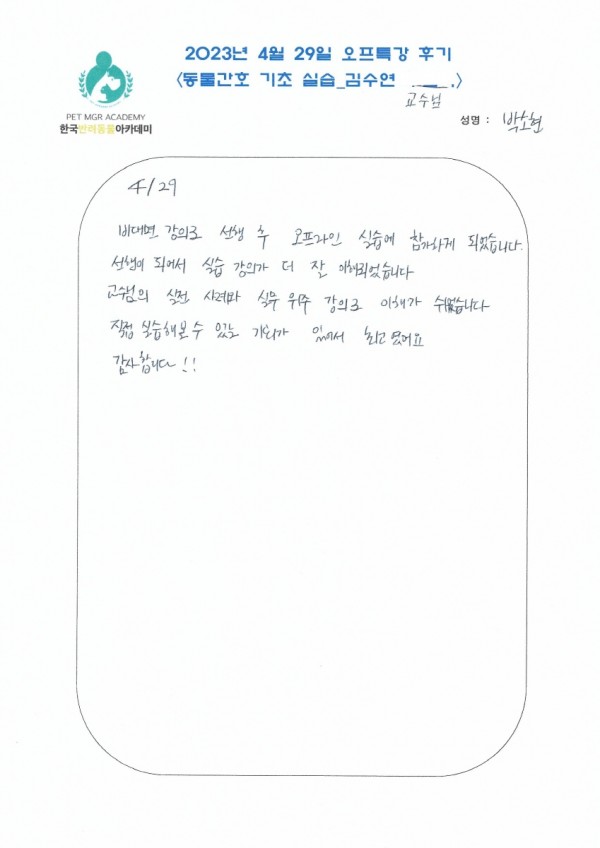 2023년 4월 29일 오프특강 후기
<동물간호 기초 실습_김수연 .>
교수님
PET MGR ACADEMY
한국반려동물아카데미
성명 : 박소현
4/29
비대면 강의로 선행 후 오프라인 실습에 참가하게 되었습니다.
선행이 되어서 실습 강의가 더 잘 이해되었습니다
교수님의 실전 사례와 실무 위주 강의로 이해가 쉬웠습니다
직접 실습해볼 수 있는 기회가 있어서 최고였어요
감사합니다!!